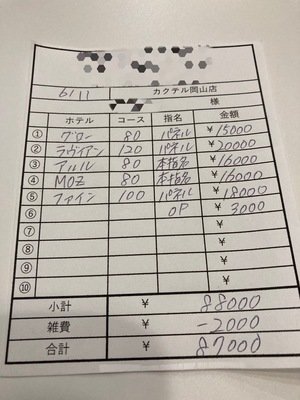 6/11 カクテル岡山店
様
ホテル コース 指名 金額
① グロー 80 パネル ¥15000
② ラヴィアン 120 パネル ¥20000
③ アルル 80 本指名 ¥16000
④ MOZ 80 本指名 ¥16000
⑤ ファイン 100 パネル ¥18000
⑥ OP ¥3000
⑦ ¥
⑧ ¥
⑨ ¥
⑩ ¥
小計 ¥ 88000
雑費 ¥ -2000
合計 ¥ 87000